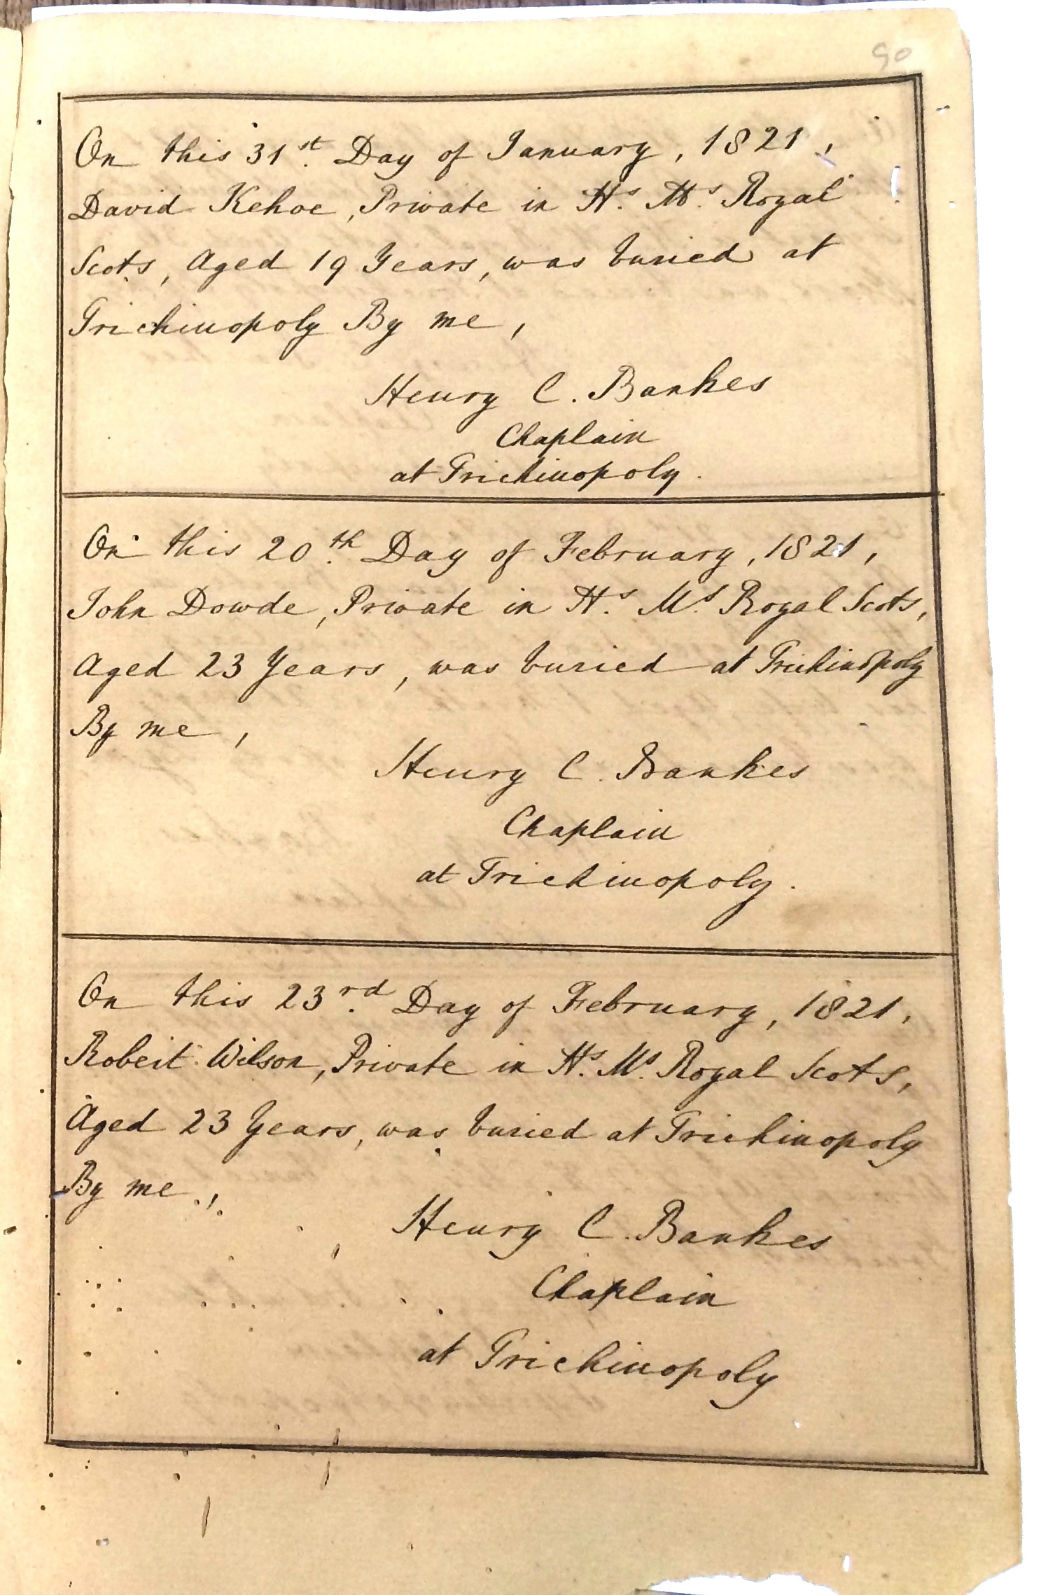 90
On this 31st. Day of January, 1821,
David Kehoe, Private in H.s M.s Royal
Scots, Aged 19 Years, was buried at
Trichinopoly By me,
Henry C. Bankes
Chaplain
at Trichinopoly.
On this 20th. Day of February, 1821,
John Dowde, Private in H.s M.s Royal Scots,
Aged 23 Years, was buried at Trichinopoly
By me,
Henry C. Bankes
Chaplain
at Trichinopoly.
On this 23rd. Day of February, 1821,
Robert Wilson, Private in H.s M.s Royal Scots,
Aged 23 Years, was buried at Trichinopoly
By me,
Henry C. Bankes
Chaplain
at Trichinopoly